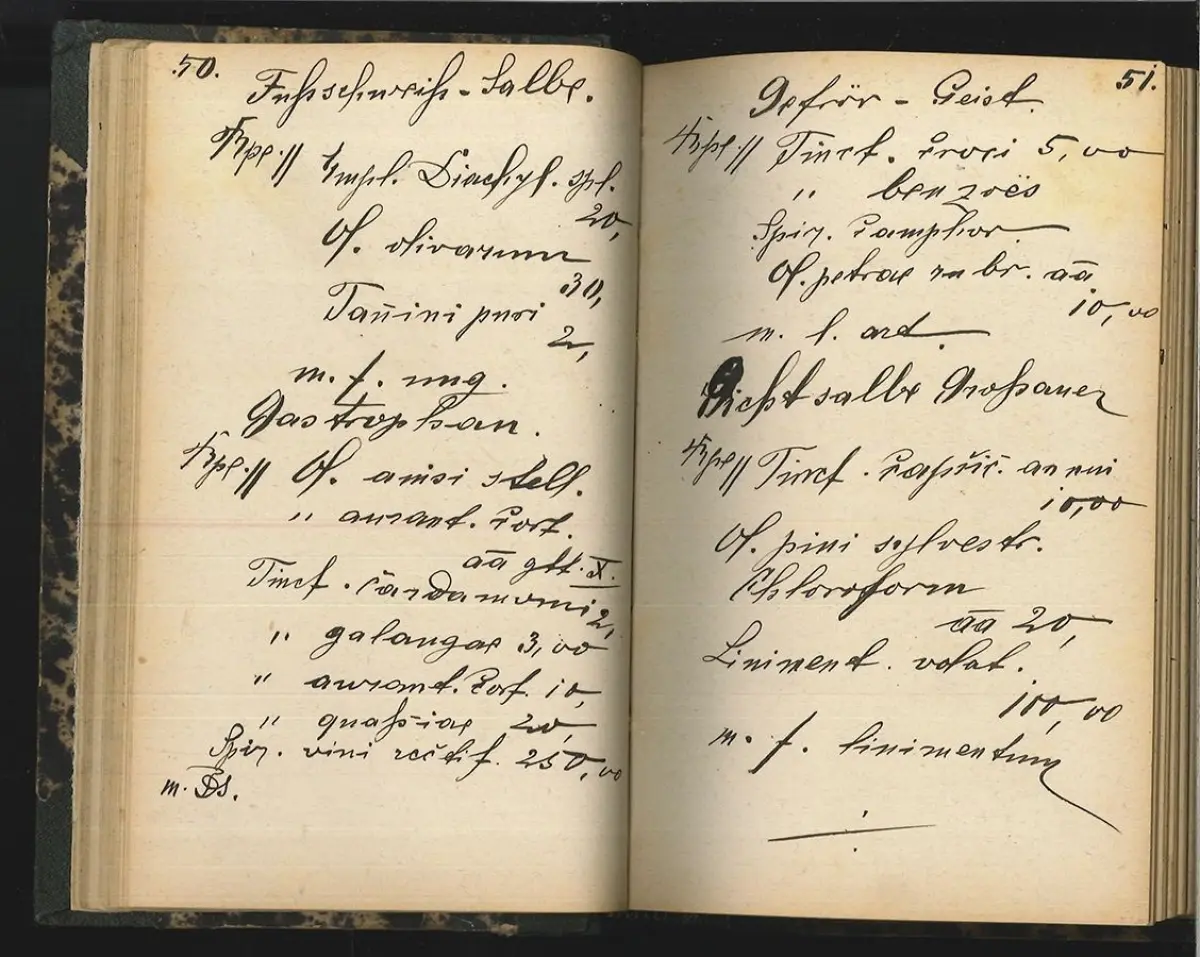 50.
Fußschweiß-Salbe.
Rpe.//
Empl. Diachyl. spl.
20,
Ol. olivarum
30,
Tañini puri
2,
m. f. ung.
Gastrophan.
Rpe.// Ol. anisi stell.
" aurant. cort.
āā gtt. X.
Tinct. Cardamomi 2,
" galangae 3,00
" aurant. Cort. 10,
" quaßiae 20,
Spir. vini rectif. 250,00
m. DS.
51.
Gefrör-Geist.
Rpe// Tinct. croci 5,00
" benzoës
Spir. camphor.
Ol. petrae rubr. āā
10,00
m. l. art.
Gichtsalbe Großauer
Rpe// Tinct. capsic. annui
10,00
Ol. pini sylvestr.
Chloroform
āā 20,
Liniment. volat.
100,00
m. f. linimentum